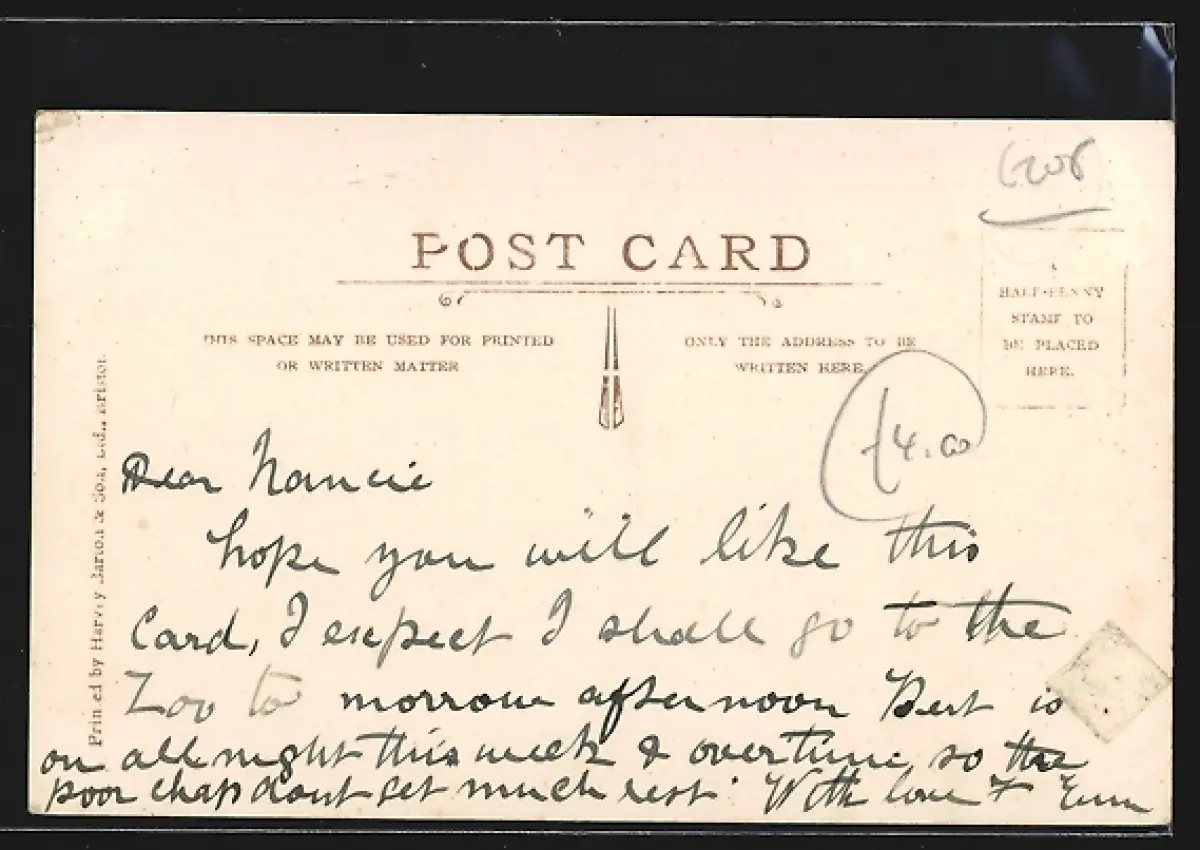 POST CARD
THIS SPACE MAY BE USED FOR PRINTED
OR WRITTEN MATTER
ONLY THE ADDRESS TO BE
WRITTEN HERE.
A
HALF-PENNY
STAMP TO
BE PLACED
HERE.
£4.00
Printed by Harvey Barton & Son, Ltd., Bristol.
Dear Nancie
hope you will like this
Card, I expect I shall go to the
Zoo to morrow afternoon Bert is
on all night this week & overtime so the
poor chap dont get much rest. With love